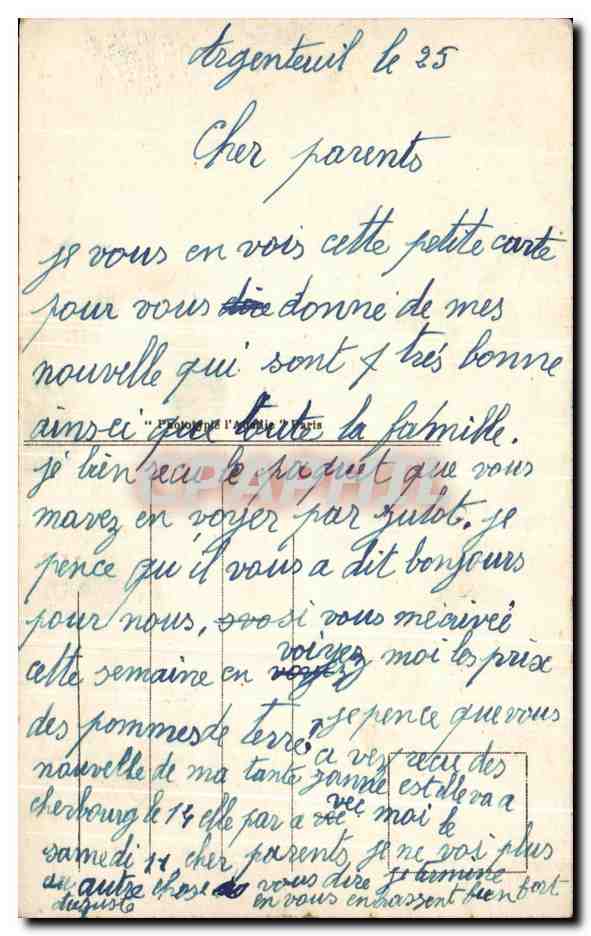 Argenteuil le 25
Cher parents
je vous en vois cette petite carte
pour vous dire donné de mes
nouvelle qui sont f très bonne
ainsei que toute la famille.
"Phototypie l'Abeille" Paris
jé bien recu le paquet que vous
CPAPHIL
mavez en voyer par julot. je
pence qu'il vous a dit bonjours
pour nous. si vous mécrivée
cette semaine en voiyez moi les prix
des pommes de terre, je pence que vous
a vez recu des
nouvelle de ma tante est elle va a
cherbourg le 14 elle par a vec moi le
samedi 11 cher parents je ne voi plus
autre chose a vous dire je termine
en vous embrassent bien fort
auguste